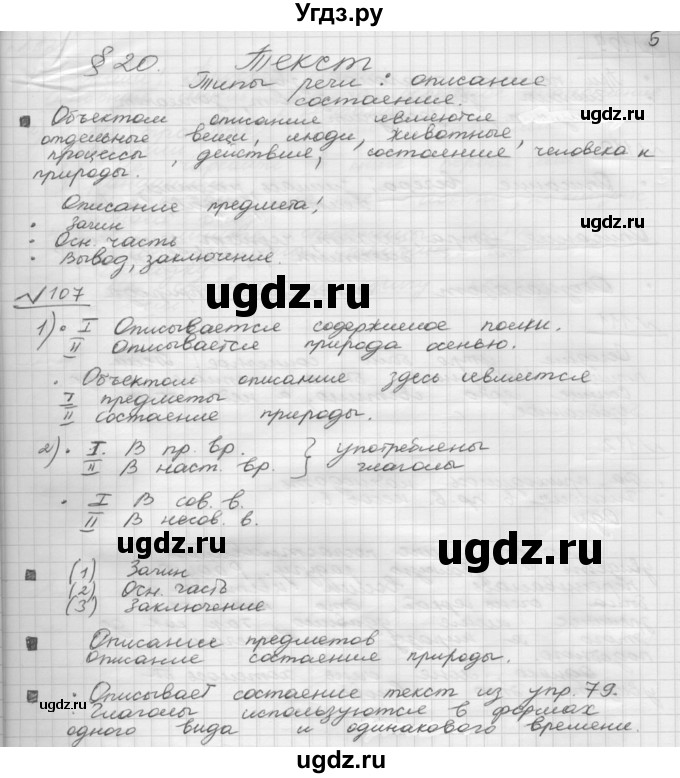 Угдз.ру
5
§ 20. Текст
Типы речи: описание
состояние.
Объектом описания являются
отдельные вещи, люди, животные,
процессы, действия, состояние человека и
природы.
Описание предмета!
• Зачин
• Осн. часть
• Вывод, заключение.
ugdz.ru
ugdz.ru
№107
1) • I Описывается содержимое полки.
II Описывается природа осенью.
• Объектом описания здесь является
I предметы
II состояние природы.
2) • I. В пр. вр. } употреблены
II В наст. вр. } глаголы
• I В сов. в.
II В несов. в.
ugdz.ru
ugdz.ru
(1) Зачин
(2) Осн. часть
(3) Заключение
Описание предметов
Описание состояния природы.
ugdz.ru
ugdz.ru
• Описывает состояние текст из упр. 79.
• Глаголы используются в формах
одного вида и одинакового времени.
ugdz.ru